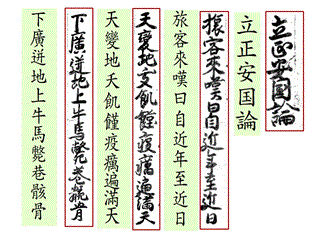 立正安国論
立正安国論
旅客來嘆曰自近年至近日
旅客來嘆曰自近年至近日
天變地夭飢饉疫癘遍滿天
天變地夭飢饉疫癘遍滿天
下廣迸地上牛馬斃巷骸骨
下廣迸地上牛馬斃巷骸骨